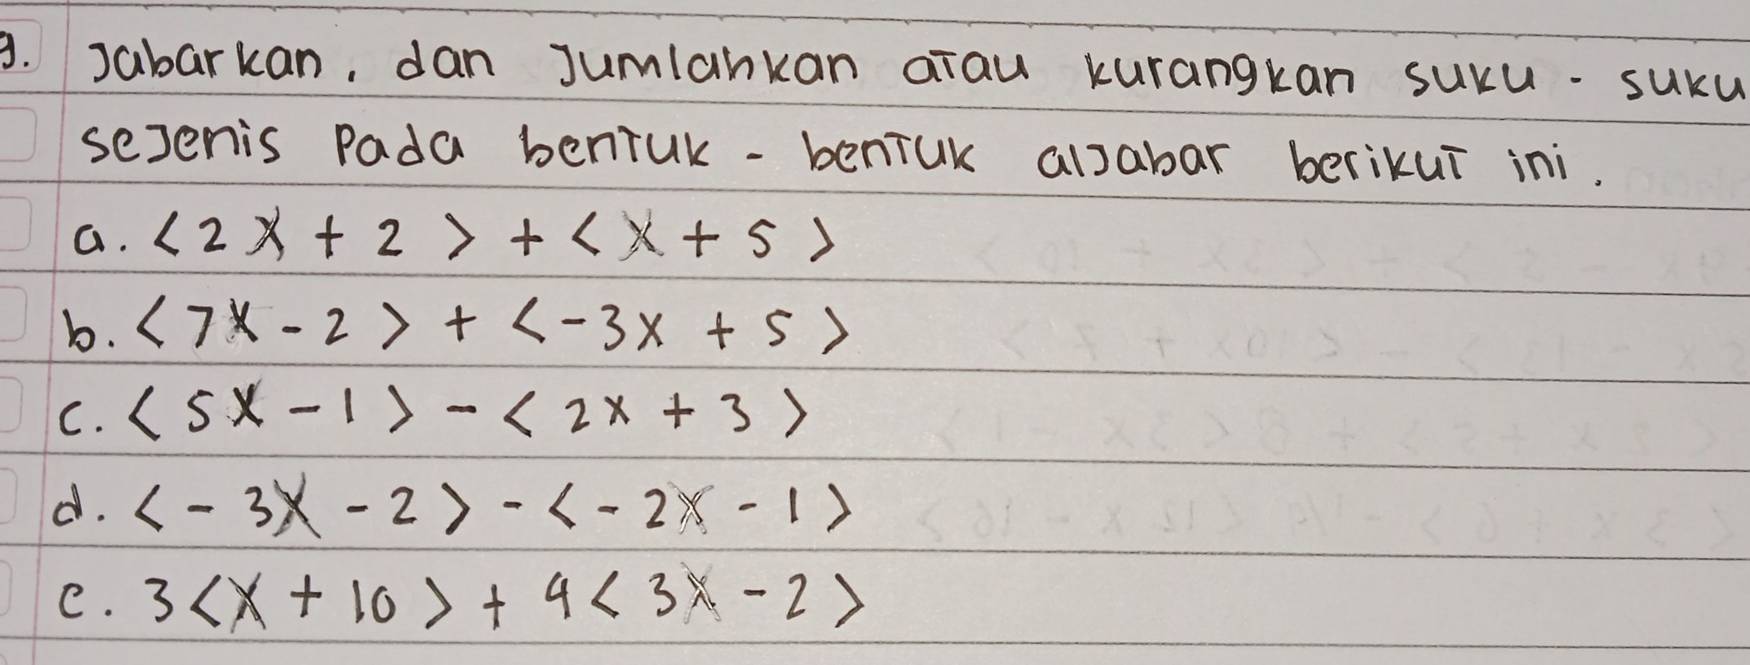 9. Jabarkan, dan Jumlahkan atau kurangkan suku - suku
seJenis Pada bentuk - bentuk alJabar berikut ini.
a. <2x + 2> + <x + 5>
b. <7x - 2> + <-3x + 5>
c. <5x - 1> - <2x + 3>
d. <-3x - 2> - <-2x - 1>
e. 3<x + 10> + 9<3x - 2>